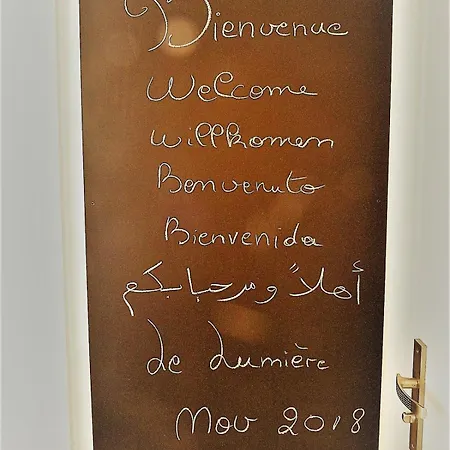 Bienvenue
Welcome
Willkomen
Benvenuto
Bienvenida
أهلاً و مرحبا بكم
Le Lumière
Nov 2018